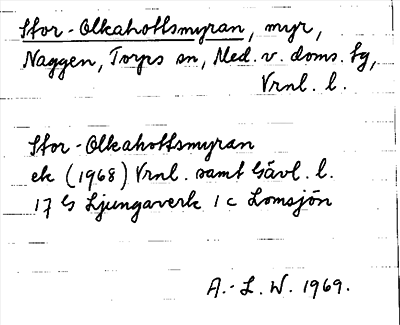 Stor-Olkahottsmyran, myr,
Naggen, Torps sn, Med. v. doms. sg,
Vrnl. l.
Stor-Olkahottsmyran
ek (1968) Vrnl. samt Gävl. l.
17 G Ljungaverk 1 c Lomsjön
A.-L. W. 1969.